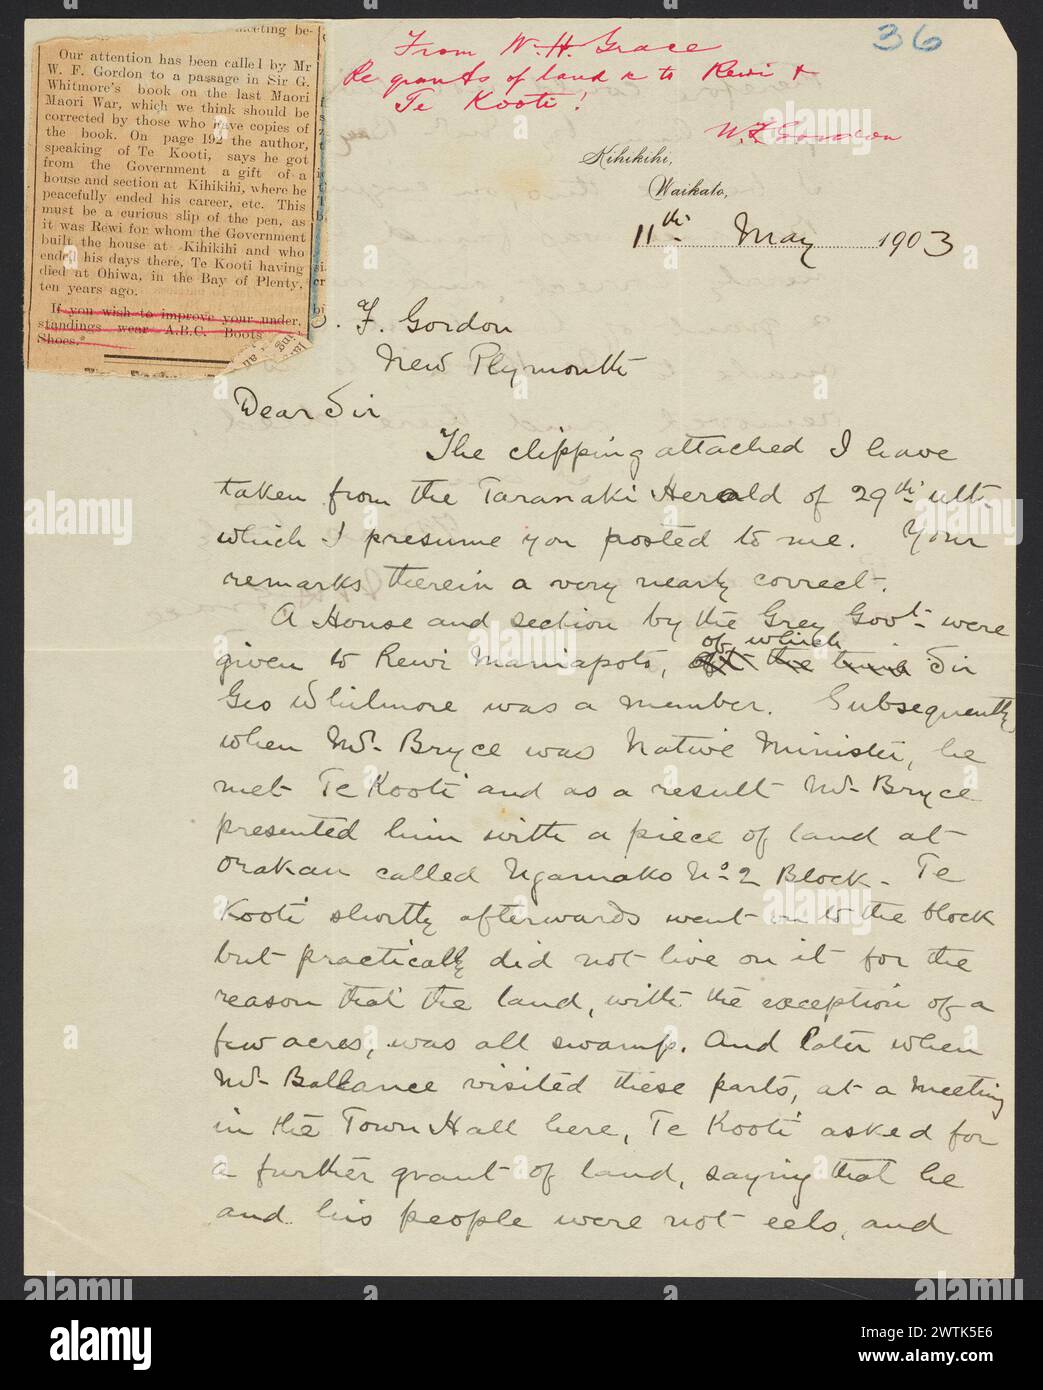 meeting be-
Our attention has been calle l by Mr
W. F. Gordon to a passage in Sir G.
Whitmore's book on the last Maori
Maori War, which we think should be
corrected by those who have copies of
the book. On page 192 the author,
speaking of Te Kooti, says he got
from the Government a gift of a
house and section at Kihikihi, where he
peacefully ended his career, etc. This
must be a curious slip of the pen, as
it was Rewi for whom the Government
built the house at Kihikihi and who
ended his days there, Te Kooti having
died at Ohiwa, in the Bay of Plenty,
ten years ago.
If you wish to improve your under.
standings wear A.B.C. Boots
Shoes.*
36
From W. H. Grace
Re grants of land & to Rewi &
Te Kooti!
W. F. Gordon
Kihikihi,
Waikato,
11th May 1903
F. Gordon
New Plymouth
Dear Sir
The clipping attached I have
taken from the Taranaki Herald of 29th ult.
which I presume you posted to me. Your
remarks therein a very nearly correct.
A House and section by the Grey Govt. were
given to Rewi Maniapoto, of which Sir
Geo Whitmore was a member. Subsequently
when Mr. Bryce was Native Minister, he
met Te Kooti and as a result Mr. Bryce
presented him with a piece of land at
Orakau called Ngamako No 2 Block - Te
Kooti shortly afterwards went on to the block
but practically did not live on it for the
reason that the land, with the exception of a
few acres, was all swamp. And later when
Mr. Ballance visited these parts, at a meeting
in the Town Hall here, Te Kooti asked for
a further grant of land, saying that he
and his people were not eels, and
alamy
Image ID: 2WTK5E6
www.alamy.com